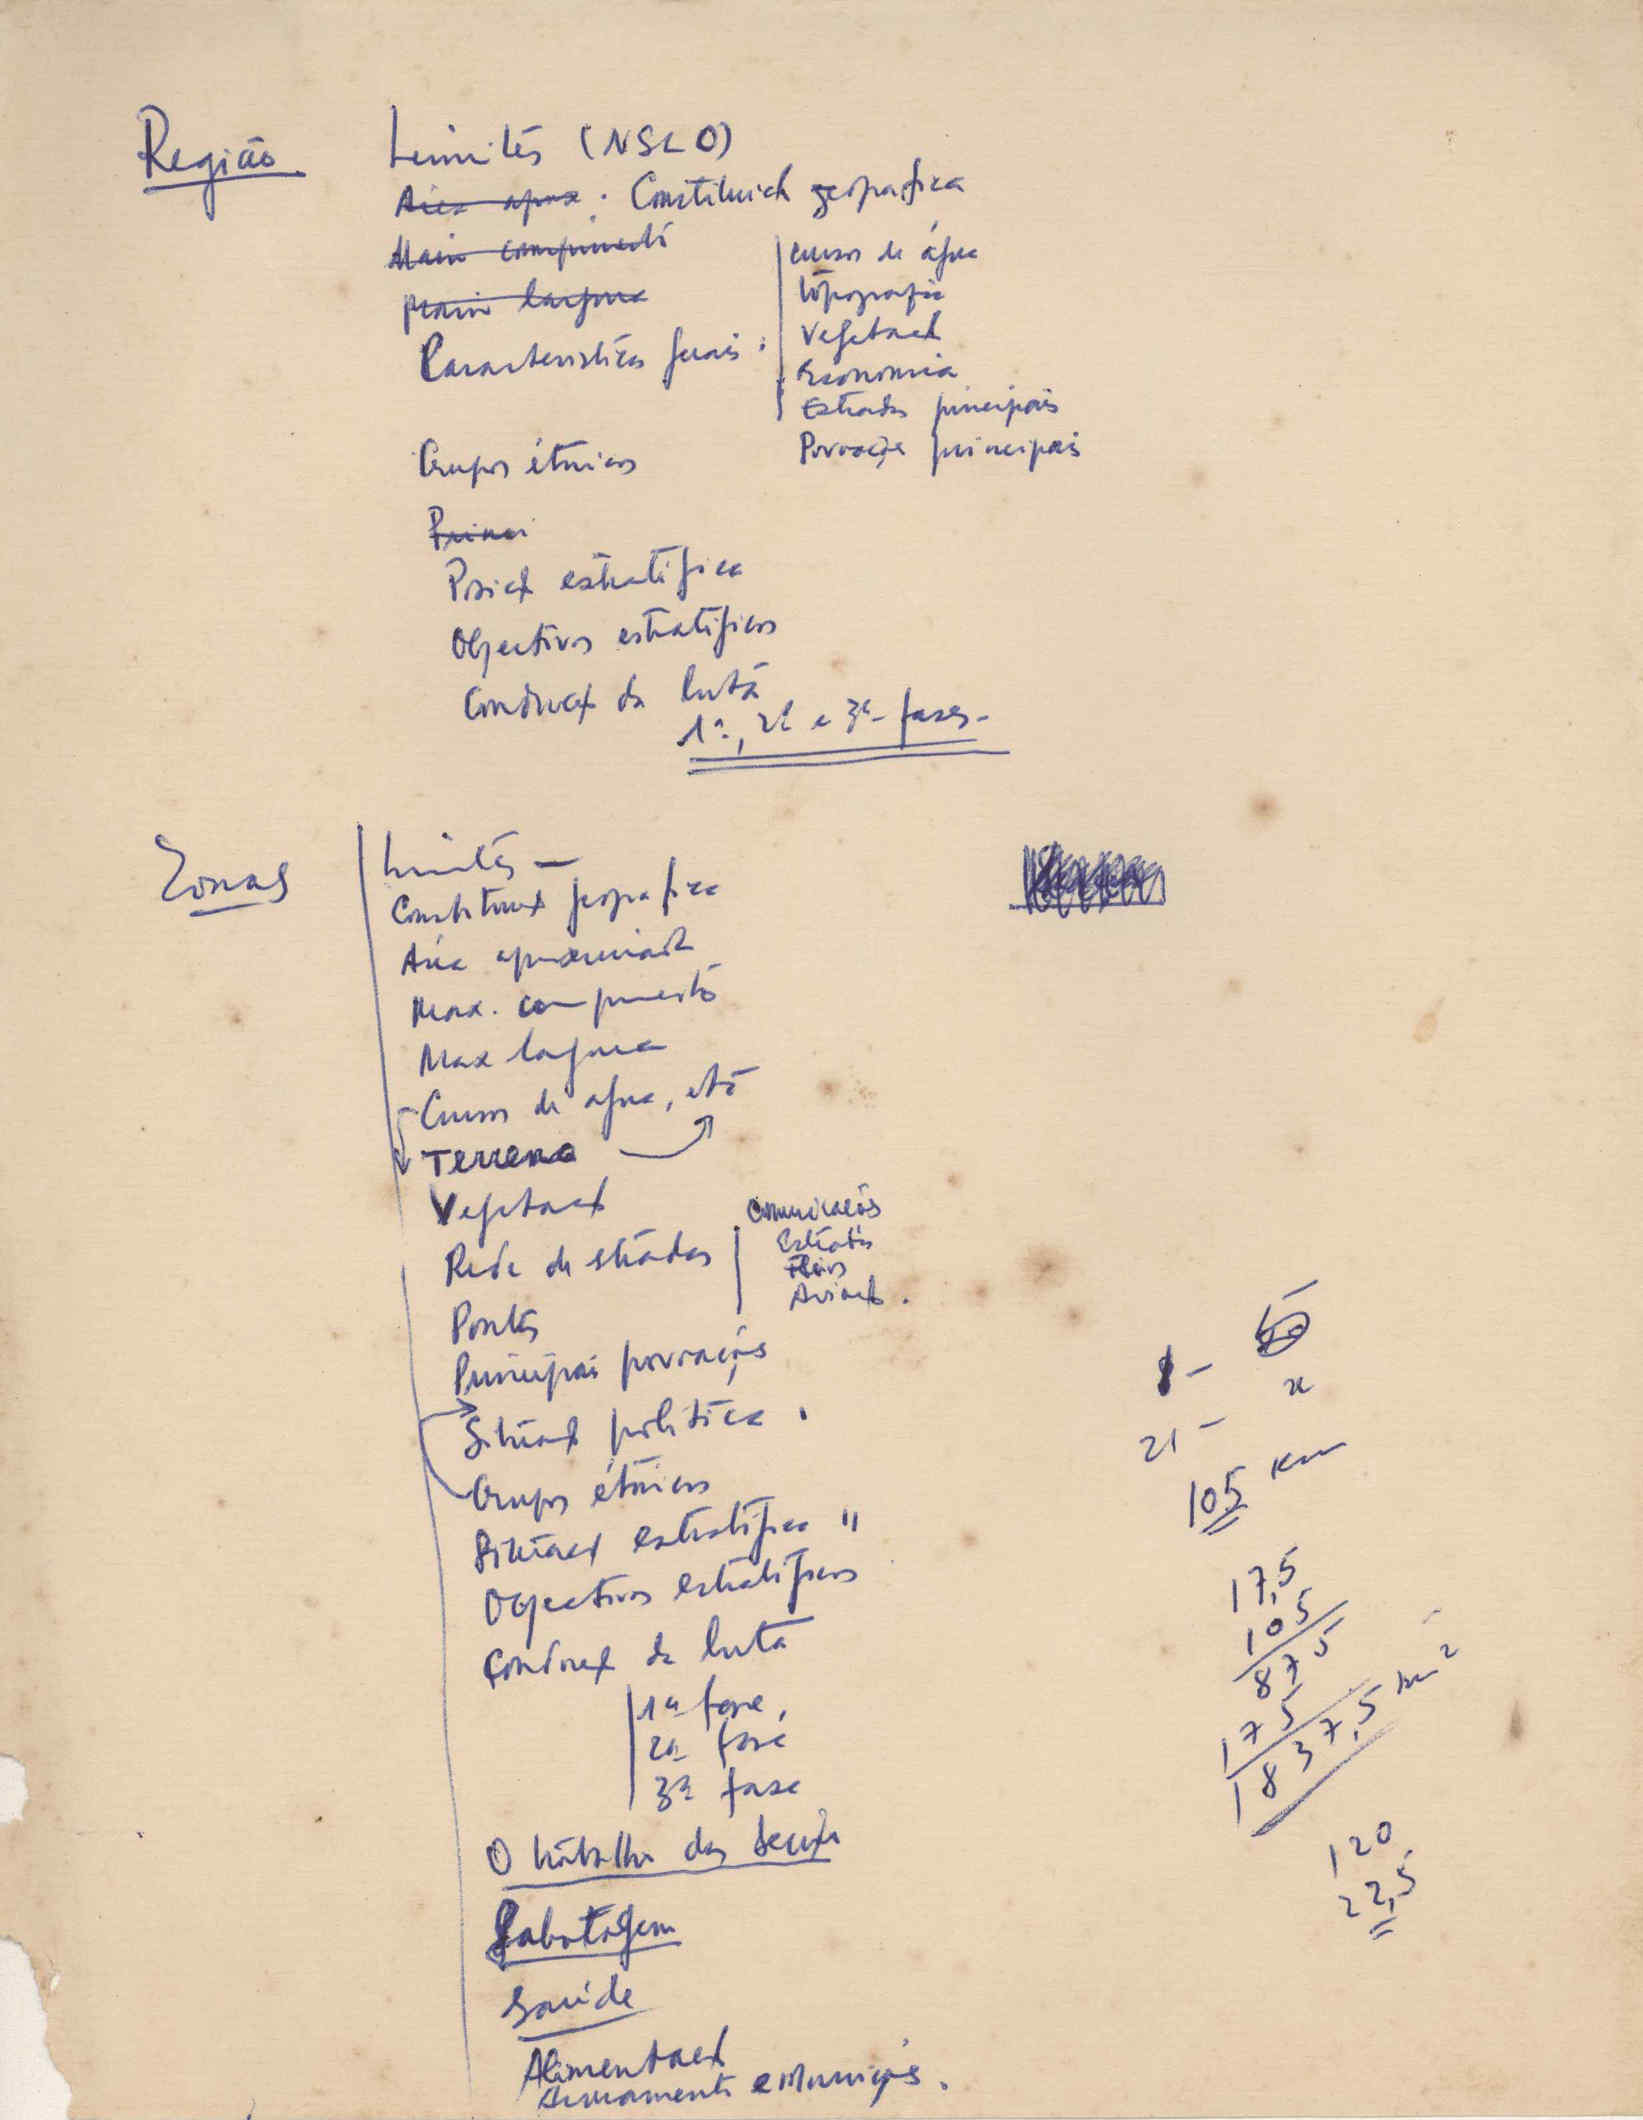 Região
Limites (NSLO)
Área aprox. Constituict geografica
Maior comprimento
Maior largura
Caracteristicas gerais:
Cursos de água
Topografia
Vegetact
Economia
Estradas principais
Povoações principais
Grupos étnicos
Princi
Posict estratégica
Objectivos estratégicos
Conduct da luta
1ª, 2ª e 3ª fases-
Zonas
Limites —
Constituict geografica
Área aproximada
Max. comprimento
Max largura
Cursos de agua, etc
Terreno
Vegetact
Rede de estradas
Comunicações
Estradas
Rios
Aviact.
Pontes
Principais povoações
Situact politica.
Grupos étnicos
Situact estratégica "
Objectivos estratégicos
Conduct da luta
1ª fase,
2ª fase
3ª fase
O trabalho das
Sabotagem
Saúde
Alimentact
Armamento e Munições.
1 - 5
x
21 -
105 Km
17,5
105
875
175
1837,5 km²
120
22,5